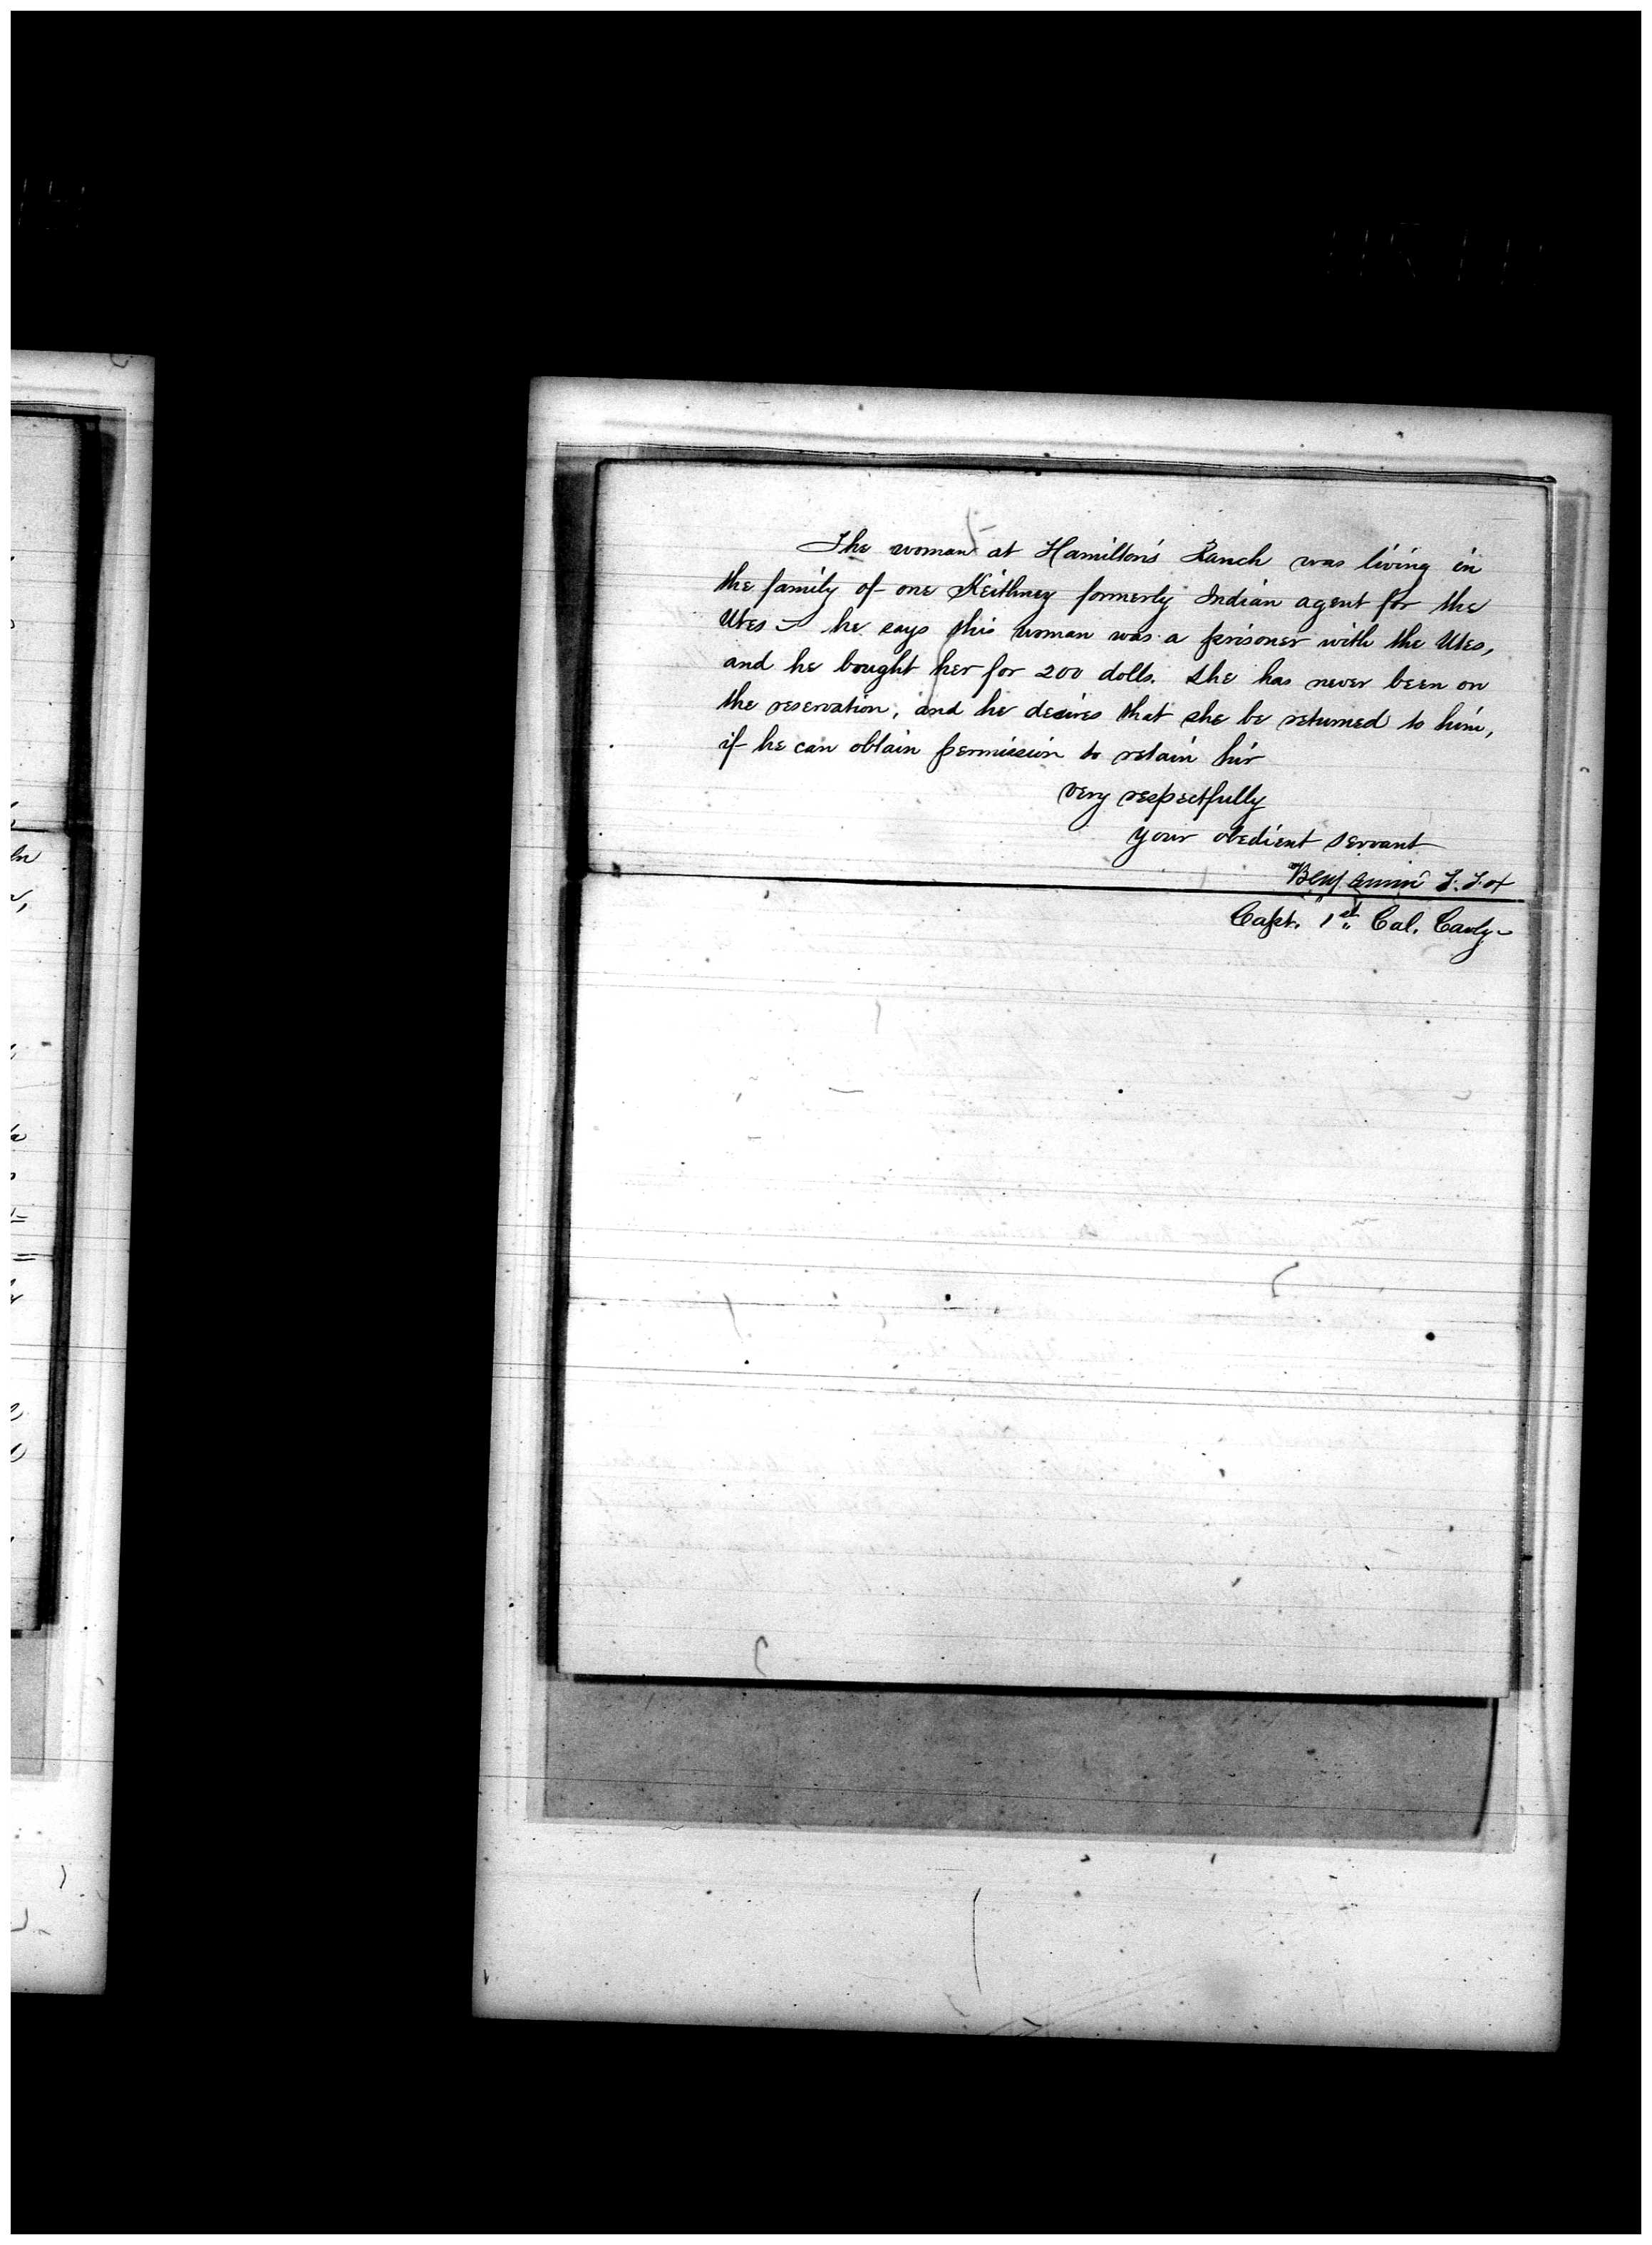 The woman at Hamilton's Ranch was living in
the family of one Keithney formerly Indian agent for the
Utes - he says this woman was a prisoner with the Utes,
and he bought her for 200 dolls. She has never been on
the reservation, and he desires that she be returned to him,
if he can obtain permission to retain her
very respectfully
your obedient servant
Benjamin F. Fox
Capt. 1st Cal. Cavly